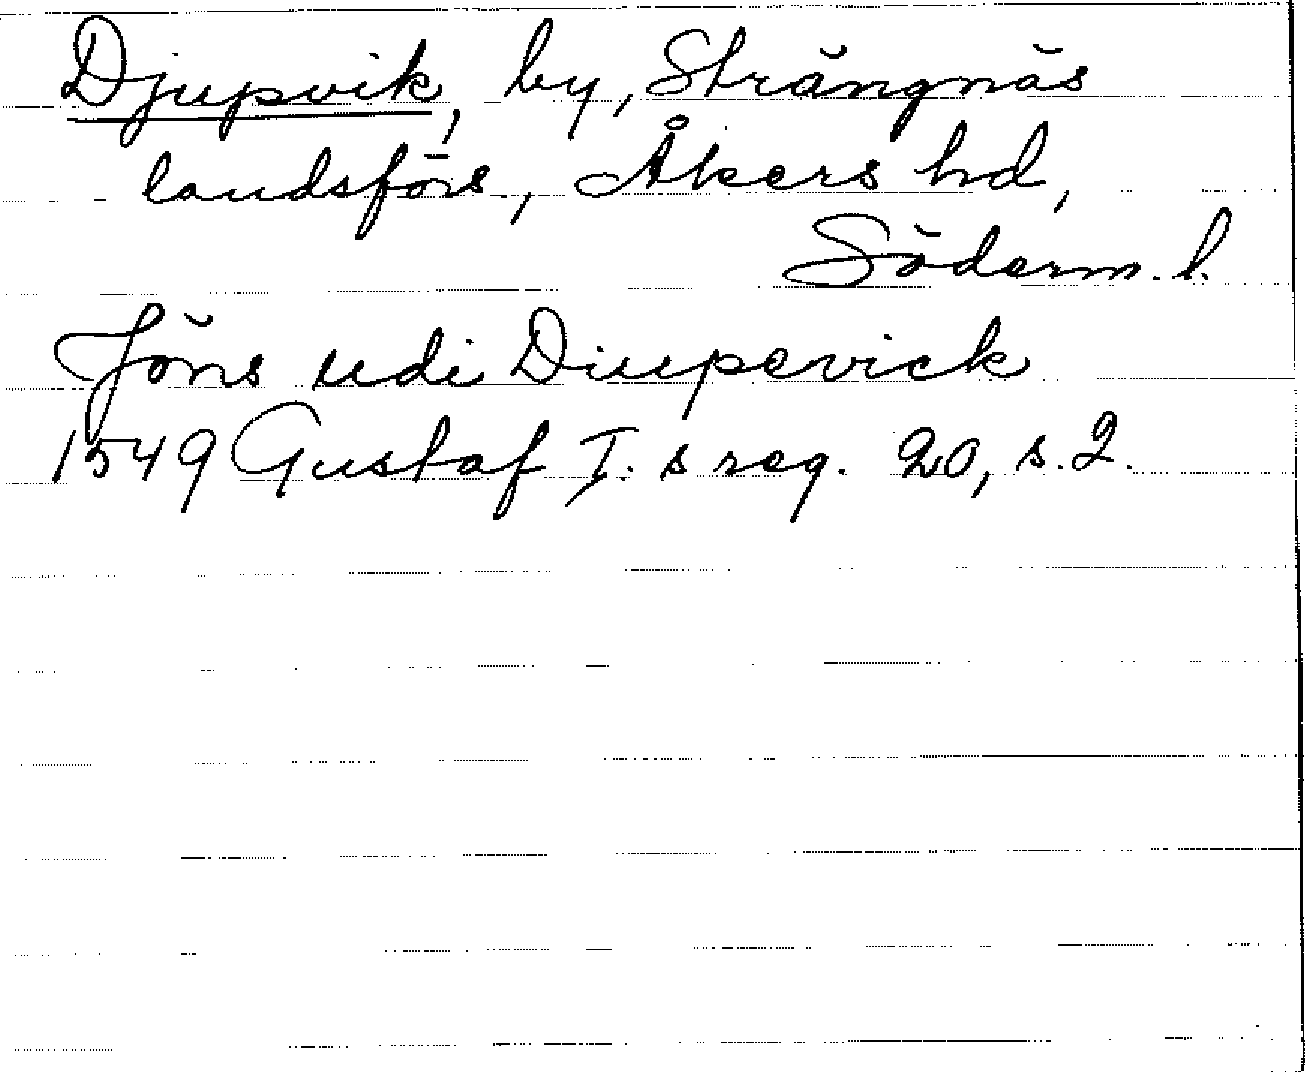 Djupvik, by, Strängnäs
landsförs, Åkers hd,
Söderm. l.
Jöns udi Diupevick
1549 Gustaf I. s reg. 20, s. 2.